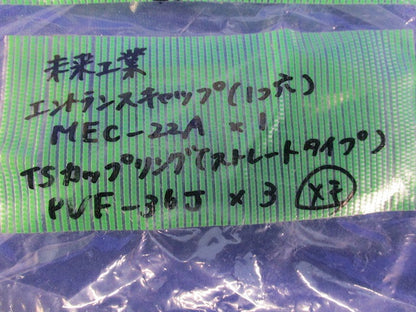 未来工業
エントランスキャップ(1つ穴)
MEC-22A ×1
TSカップリング(ストレートタイプ)
PVF-36J ×3